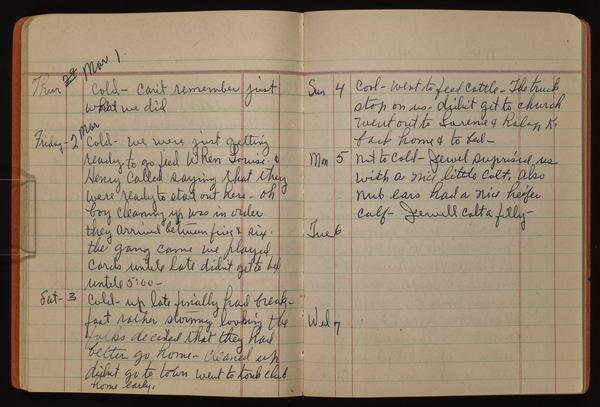 Thur Mar 1 Cold- can't remember just
what we did
Friday- 2 Mar Cold- we were just getting
ready to go feed when Louise &
Henry called saying that they
were ready to start out here- oh
boy cleaning up was in order
they arrived between five & six.
the gang came we played
cards untile late didn't get to bed
untile 5:00-
Sat- 3 Cold- up late finially had break-
fast rather stormy looking the
folks decided that they had
better go home- cleaned up
didn't go to town went to club
home early.
Sun 4 Cool- went to feed cattle- The truck
stop on us- didn't get to church
went out to Lorene & Ralph K.
back home & to bed-
Mon 5 not to cold- Jewel suprised us
with a nice little colt, also
nub ears had a nice heifer
calf- Jewell colt a filly-
Tue 6
Wed 7